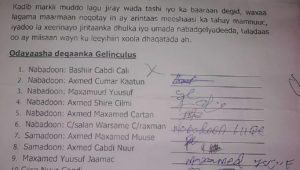 Kadib markii muddo lagu jiray wada tashi iyo ka baaraan degid, waxaa
lagama maarmaan noqotay in ay arintaas meeshaasi ka tahay mamnuuc,
iyadoo la xeerinayo jiritaanka dhulka iyo umada nabadgelyadeeda, taladaas
oo ay misaan wayn ku leeyihiin xoola dhaqatada ah.
Odayaasha deqaanka Gelinculus
1. Nabadoon: Bashiir Cabdi Cali
2. Nabadoon: Axmed Cumar Kaatun
3. Nabadoon: Maxamuud Yuusuf
4. Nabadoon: Axmed Shire Cilmi
5. Nabadoon: Axmed Maxamed Cartan
6. Nabadoon: C/salan Warsame C/raxman Nabadoon
7. Samadoon: Axmed Maxamed Muuse
8. Samadoon: Axmed Cabdi Nuur
9. Maxamed Yuusuf Jaamac Mohamed